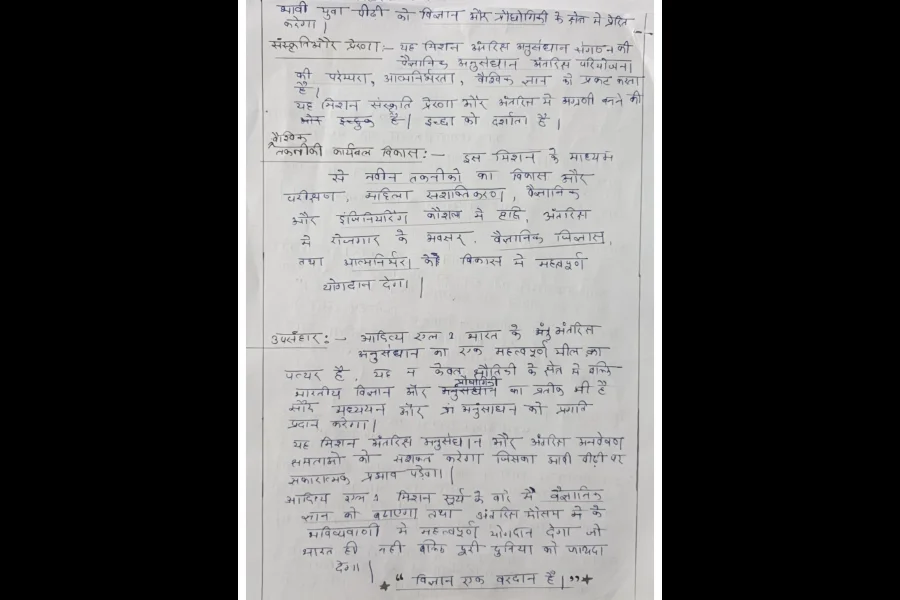 भावी युवा पीढी को विज्ञान और प्रौद्योगिकी के क्षेत्र मे प्रेरित
करेगा |
संस्कृति और प्रेरणा :- यह मिशन अंतरिक्ष अनुसंधान संगठन की
वैज्ञानिक अनुसंधान अंतरिक्ष परियोजना
की परंम्परा, आत्मनिर्भरता, वैश्विक ज्ञान को प्रकट करता
है |
यह मिशन संस्कृति प्रेरणा और अंतरिक्ष मे अग्रणी बनने की
इच्छुक है | इच्छा को दर्शाता है |
वैश्विक
तकनीकी कार्यबल विकास :- इस मिशन के माध्यम
से नवीन तकनीको का विकास और
परीक्षण, महिला सशक्तिकरण, वैज्ञानिक
और इंजिनियरिंग कौशल मे वृद्दि, अंतरिक्ष
मे रोजगार के अवसर, वैज्ञानिक जिज्ञासा,
तथा आत्मनिर्भर के विकास मे महत्वपूर्ण
योगदान देगा |
उपसंहार :- आदित्य एल 1 भारत के अंतरिक्ष
अनुसंधान का एक महत्वपूर्ण मील का
पत्थर है, यह न केवल भौतिकी के क्षेत्र मे बल्कि
प्रौद्योगिकी
भारतीय विज्ञान और अनुसंधान का प्रतीक भी है
सौर अध्ययन और अनुसंधान को प्रगति
प्रदान करेगा |
यह मिशन अंतरिक्ष अनुसंधान और अंतरिक्ष अन्वेषण
क्षमताओ को सशक्त करेगा जिसका भावी पीढी पर
सकारात्मक प्रभाव पड़ेगा |
आदित्य एल 1 मिशन सूर्य के बारे मे वैज्ञानिक
ज्ञान को बढाएगा तथा अंतरिक्ष मौसम मे के
भविष्यवाणी मे महत्वपूर्ण योगदान देगा जो
भारत ही नही बल्कि पूरी दुनिया को फायदा
देगा |
★ " विज्ञान एक वरदान है | " ★